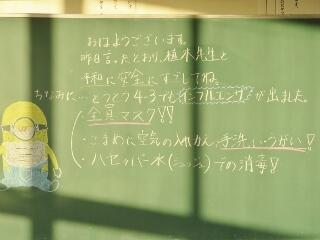 おはようございます。
昨日言ったとおり、植木先生と
平和に安全にすごしてね。
ちなみに…とうとう4-3でもインフルエンザが出ました。
・全員マスク!!
・こまめに空気の入れかえ、手洗い、うがい!
・ハセッパー水(シュッシュ)での消毒!